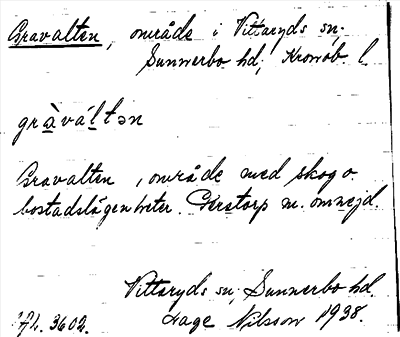 Gravalten, område i Vittaryds sn,
Sunnerbo hd, Kronob. l.
gràváltən
Gravalten, område med skog o.
bostadslägenheter. Gerstorp m. omnejd.
Vittaryds sn, Sunnerbo hd.
Afl. 3602. Hage Nilsson 1938.